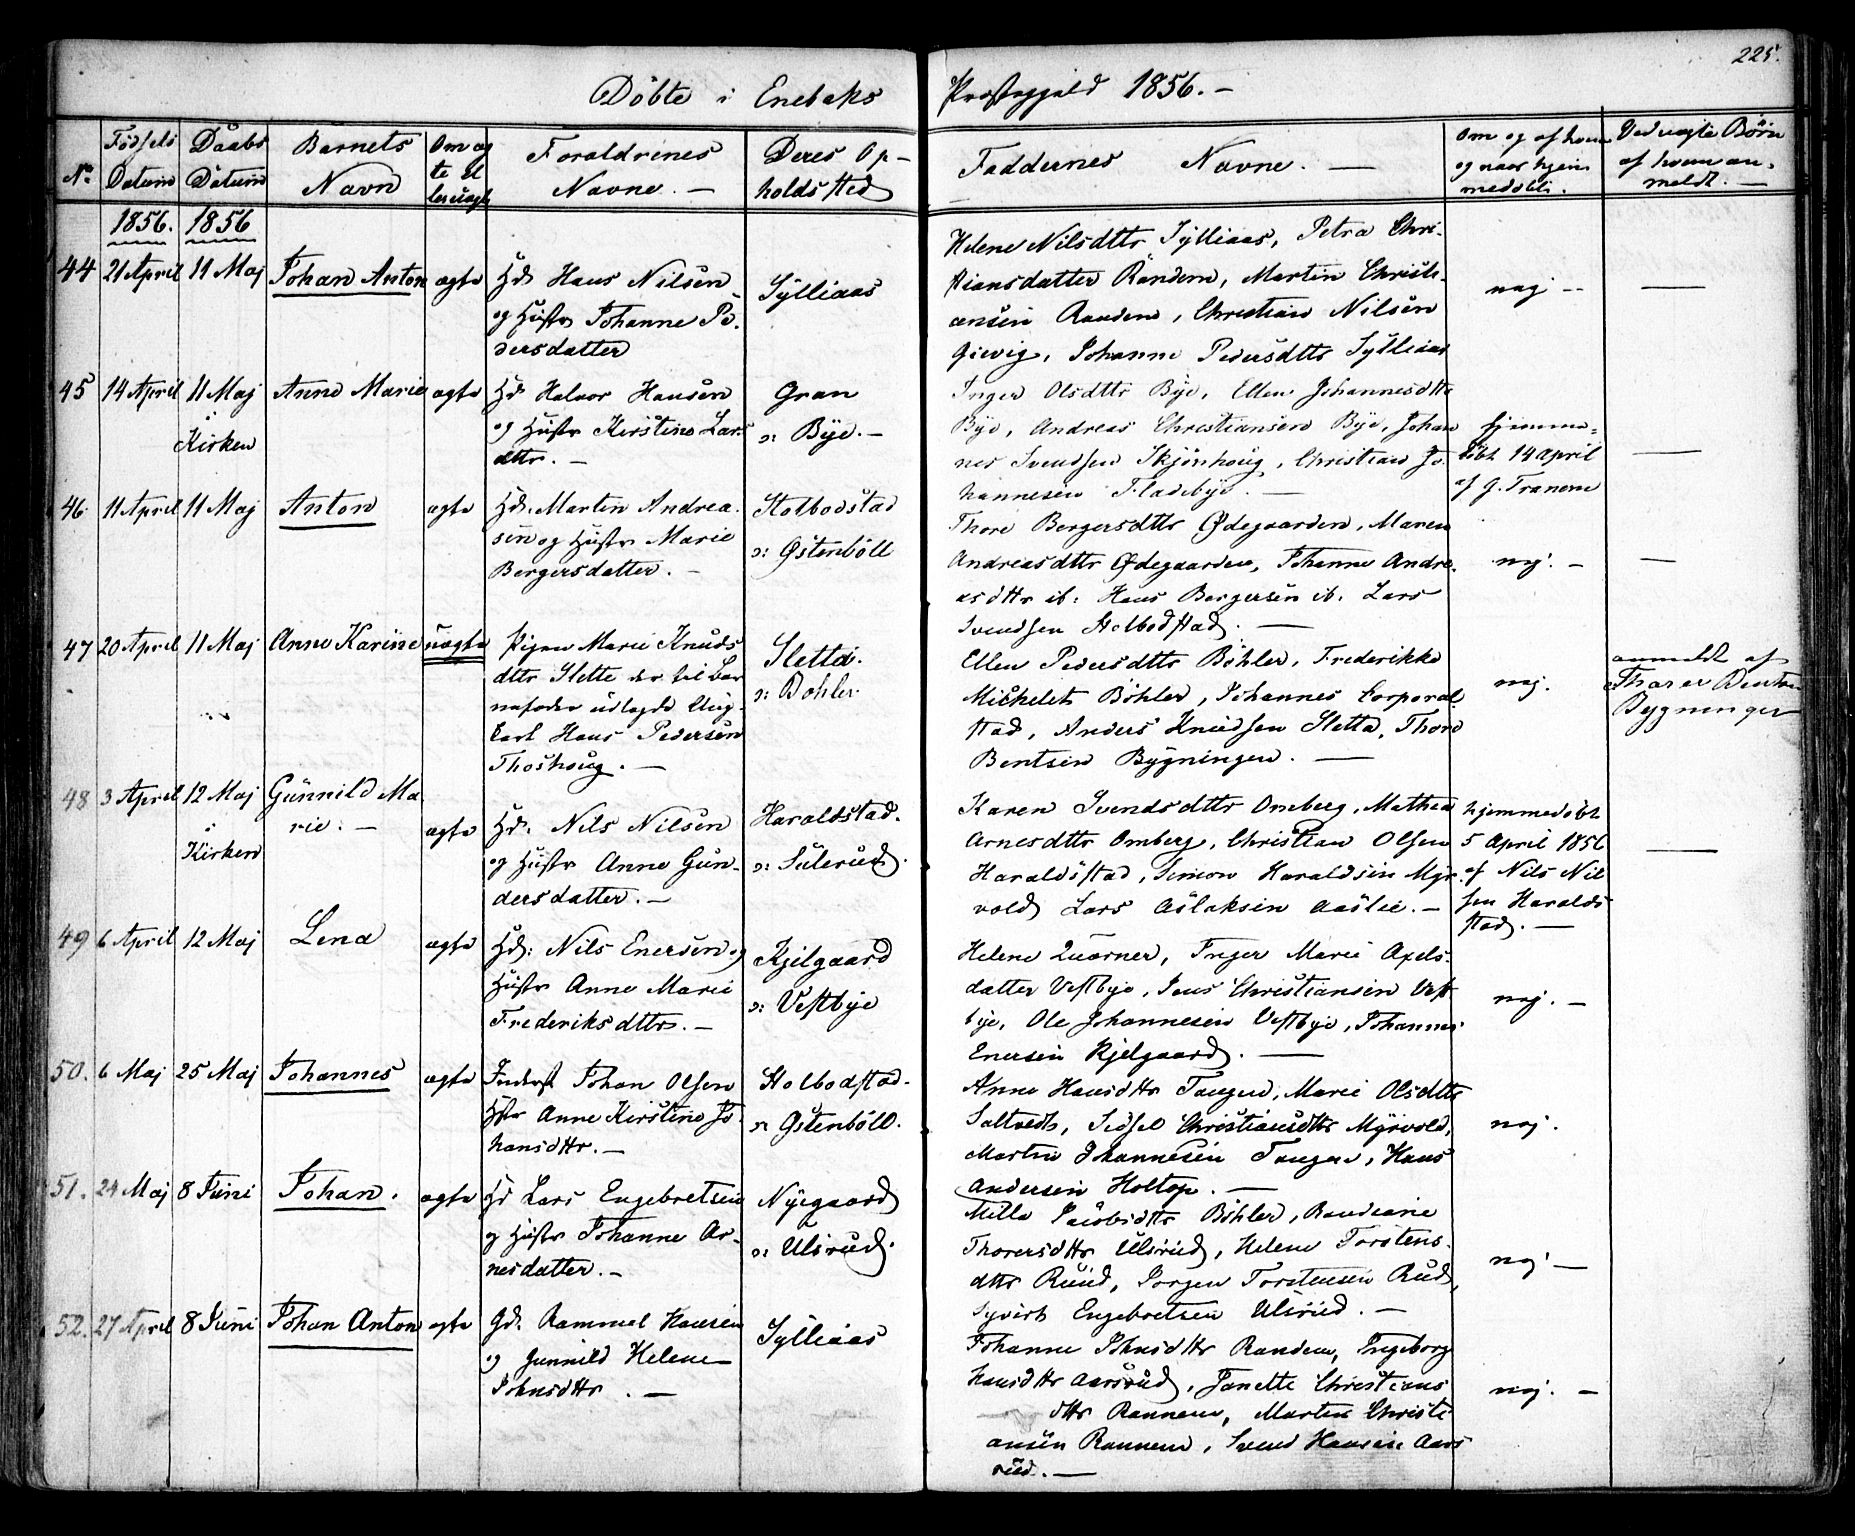 225.
Döbte i Enebaks Præstegjeld 1856. –
No. Födsels Datum Daabs Datum Barnets Navn Om ægte el leruægte Forældrenes Navne. – Deres Opholdsted Faddernes Navne. — Om og af hvem og naar hjemmedöbt. Ved uægte Börn af hvem anmeldt. –
1856. 1856
44 21 April 11 Maj Johan Anton ægte Gd. Hans Nilsen
og Hustr Johanne Pe-
dersdatter
Sylliaas
Helene Nilsdttr Sylliaas, Petra Chri-
stiansdatter Randem, Martin Christi-
ansen Randem, Christian Nilsen
Gievig, Johanne Pedersdttr Sylliaas
nej --
—
45 14 April 11 Maj i Kirken Anne Marie ægte Gd. Halvor Hansen
og Hustr Kirstine Lars
dttr. –
Gran
o: Bÿe. –
Inger Olsdttr Bÿe, Ellen Johannesdttr
Bÿe, Andreas Christiansen Bÿe, Johan
nes Svendsen Skjönhoug, Christian Jo
hannesen Fladebÿe. —
hjemme-
döbt 14 April
af J. Tranem
—
46 11 April 11 Maj Anton ægte Hd. Martin Andrea
sen og Hustr Marie
Bergersdatter. –
Stolbodstad
o: Østenböll
Thore Bergersdttr Ødegaarden, Maren
Andreasdttr Ødegaarden, Johanne Andre-
asdttr ib: Hans Bergersen ib. Lars
Svendsen Stolbodstad. —
nej. –
—
47 20 April 11 Maj Anne Karine uægte Pigen Marie Knuds
dttr Slette der til Bar
nefader udlagde Ung-
karl Hans Pedersen
Thoshoug. —
Sletta.
o: Böhler.
Ellen Pedersdttr Böhler, Frederikke
Michelet Böhler, Johannes Corporal
stad, Anders Knudsen Sletta, Thore
Bentsen Bÿgningen. —
nej.
anmeldt af
Thorer Bentsen
Bygninger
48 3 April 12 Maj i Kirken Gunnild Ma
rie. –
ægte Hd. Nils Nilsen
og Hustr Anne Gun-
dersdatter. –
Haraldstad.
o: Sulerud.
Karen Svendsdttr Omberg, Mathea
Arnesdttr Omberg, Christian Olsen
Haraldstad, Simon Haraldsen Mÿr
vold Lars Aslaksen Aaslie. –
hjemmedöbt
5 April 1856
af Nils Nil
sen Harald
stad. –
—
49 6 April 12 Maj Lena ægte Hd. Nils Enersen og
Hustr Anne Marie
Frederiksdttr. –
Kjelgaard
o: Vestbÿe
Helene Quærner, Inger Marie Axels-
datter Vestbÿe, Jens Christiansen Vest
bÿe, Ole Johannesen Vestbÿe, Johannes
Enersen Kjelgaard. —
nej. –
50. 6 Maj 25 Maj Johannes ægte Inderst Johan Olsen
Hstr Anne Kirstine Jo
hansdttr. –
Stolbodstad.
o: Østenböll.
Anne Hansdttr Tangen, Marie Olsdttr
Saltvedt, Sidsel Christiansdttr Mÿrvold,
Martin Johannesen Tangen, Hans
Andersen Holtop. —
nej.
51. 24 Maj 8 Juni Johan. ægte Gd Lars Engebretsen
og Hustr Johanne Ar-
nesdatter. –
Nÿegaard
o: Ulsrud.
Mille Jacobsdttr Böhler, Randine
Thorersdttr Ulsrud, Helene Torstens-
dttr Ruud, Jörgen Torstensen Rud,
Syvert Engebretsen Ulsrud. –
nej –
52. 27 April 8 Juni Johan Anton ægte Gd. Rammel Hansen
og Gunnild Helene
Johnsdttr. —
Sylliaas
Johanne Johnsdttr Randem, Ingeborg
Hansdttr Aarsrud, Janette Christians
dttr Rannem, Martin Christi
ansen Rannem, Svend Hansen Aars
rud. —
nej. –